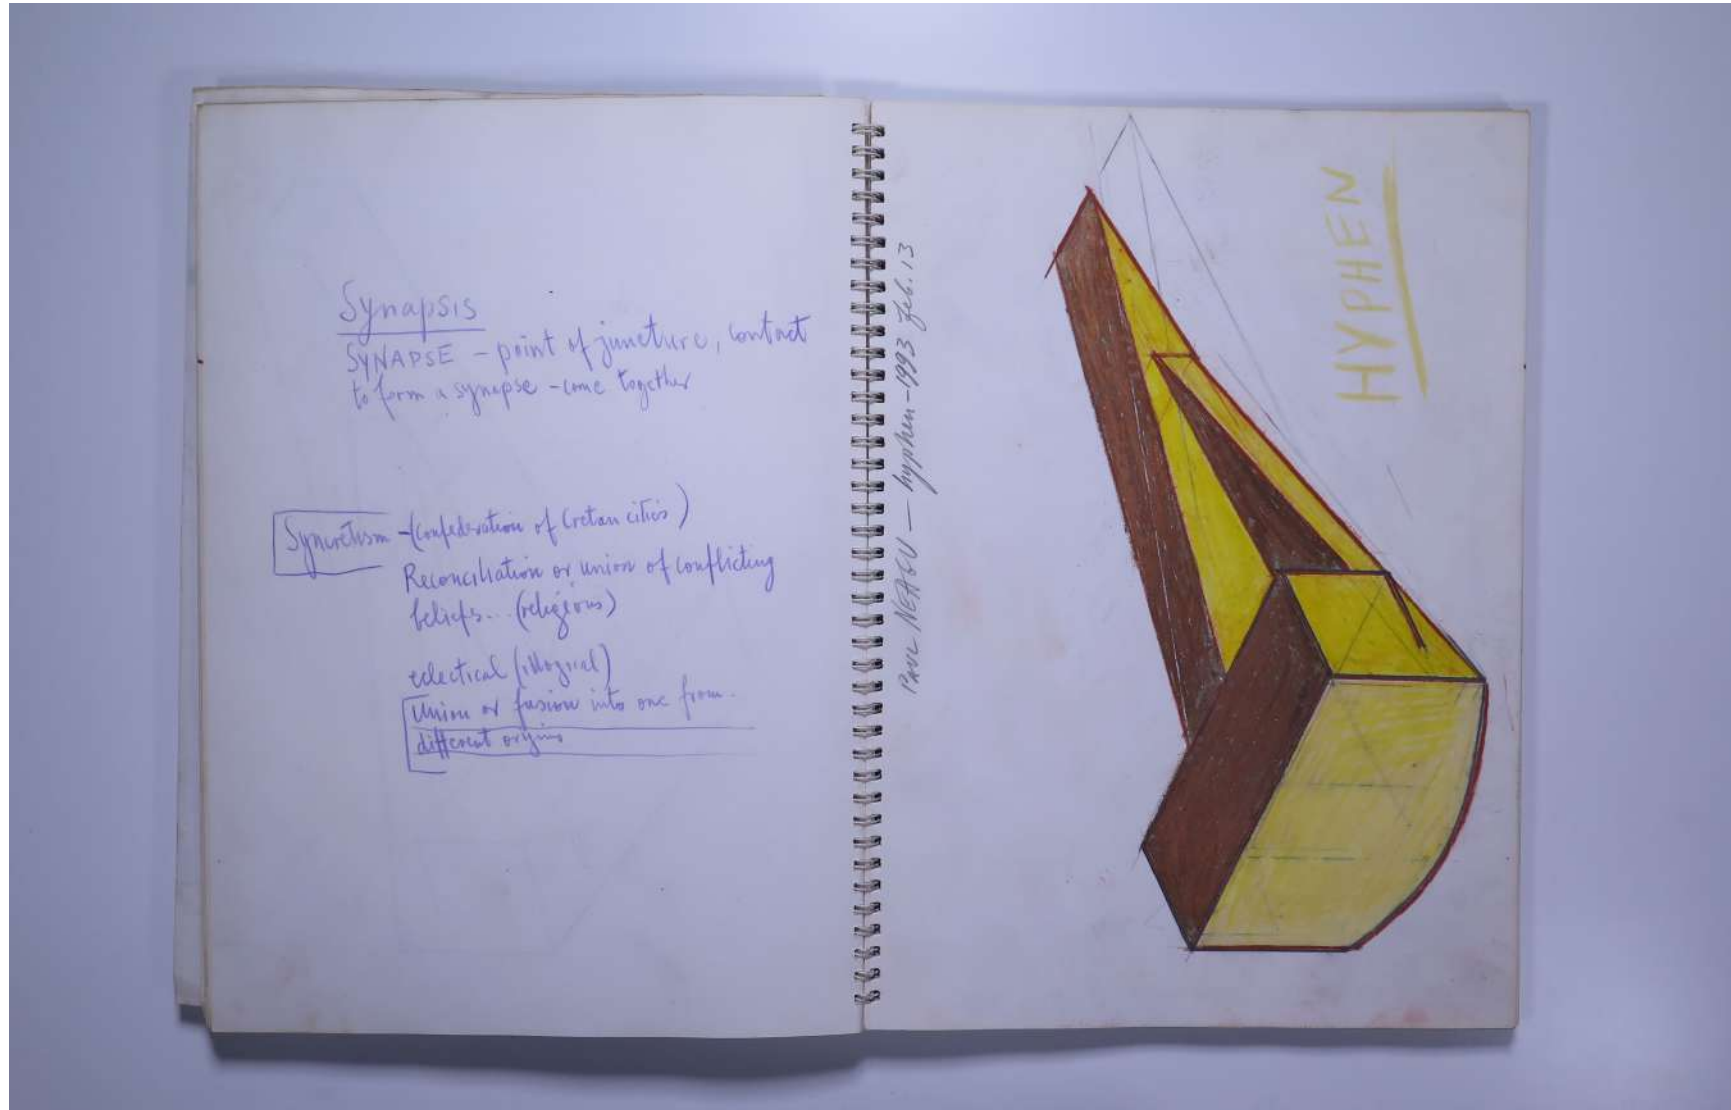 Synapsis
SYNAPSE - point of juncture, contact
to form a synapse - come together
Syncretism - (confederation of Cretan cities)
Reconciliation or union of conflicting
beliefs... (religious)
eclectical (illogical)
Union or fusion into one from
different origins
PAUL NEAGU — hyphen - 1993 Feb. 13
HYPHEN